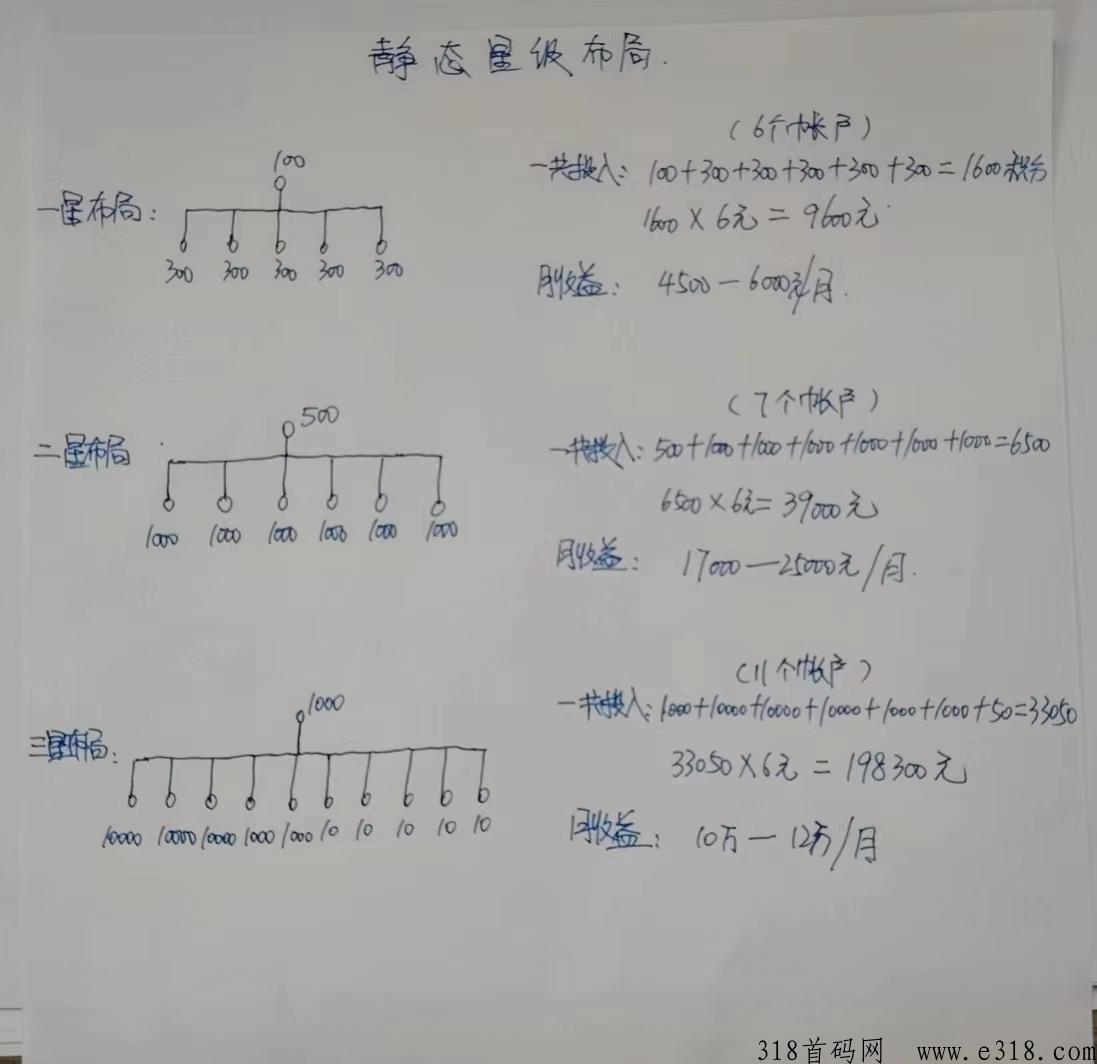 静态星级布局.
100
一星布局:
300 300 300 300 300
(6个帐户)
一共投入: 100+300+300+300+300+300=1600积分
1600×6元=9600元
月收益: 4500-6000元/月.
500
二星布局
1000 1000 1000 1000 1000 1000
(7个帐户)
一共投入: 500+1000+1000+1000+1000+1000+1000=6500
6500×6元=39000元
月收益: 17000-25000元/月.
1000
三星布局:
10000 10000 10000 1000 1000 10 10 10 10 10
(11个帐户)
一共投入: 1000+10000+10000+10000+1000+1000+50=33050
33050×6元=198300元
月收益: 10万-12万/月
318首码网 www.e318.com